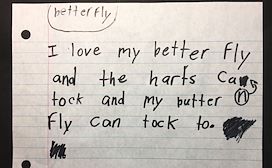 betterfly
I love my better fly
and the harts Can
tock and my butter n
Fly can tock to.